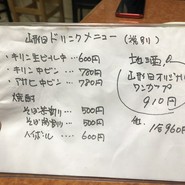 山野目ドリンクメニュー（税別）
・キリン生ビール中 … 600円
・キリン中ビン … 780円
・アサヒ中ビン … 780円
・焼酎
そば茶割り … 500円
そば湯割り … 500円
・ハイボール … 600円
地酒
山野目オリジナル
ワンカップ
910円
他、
960円